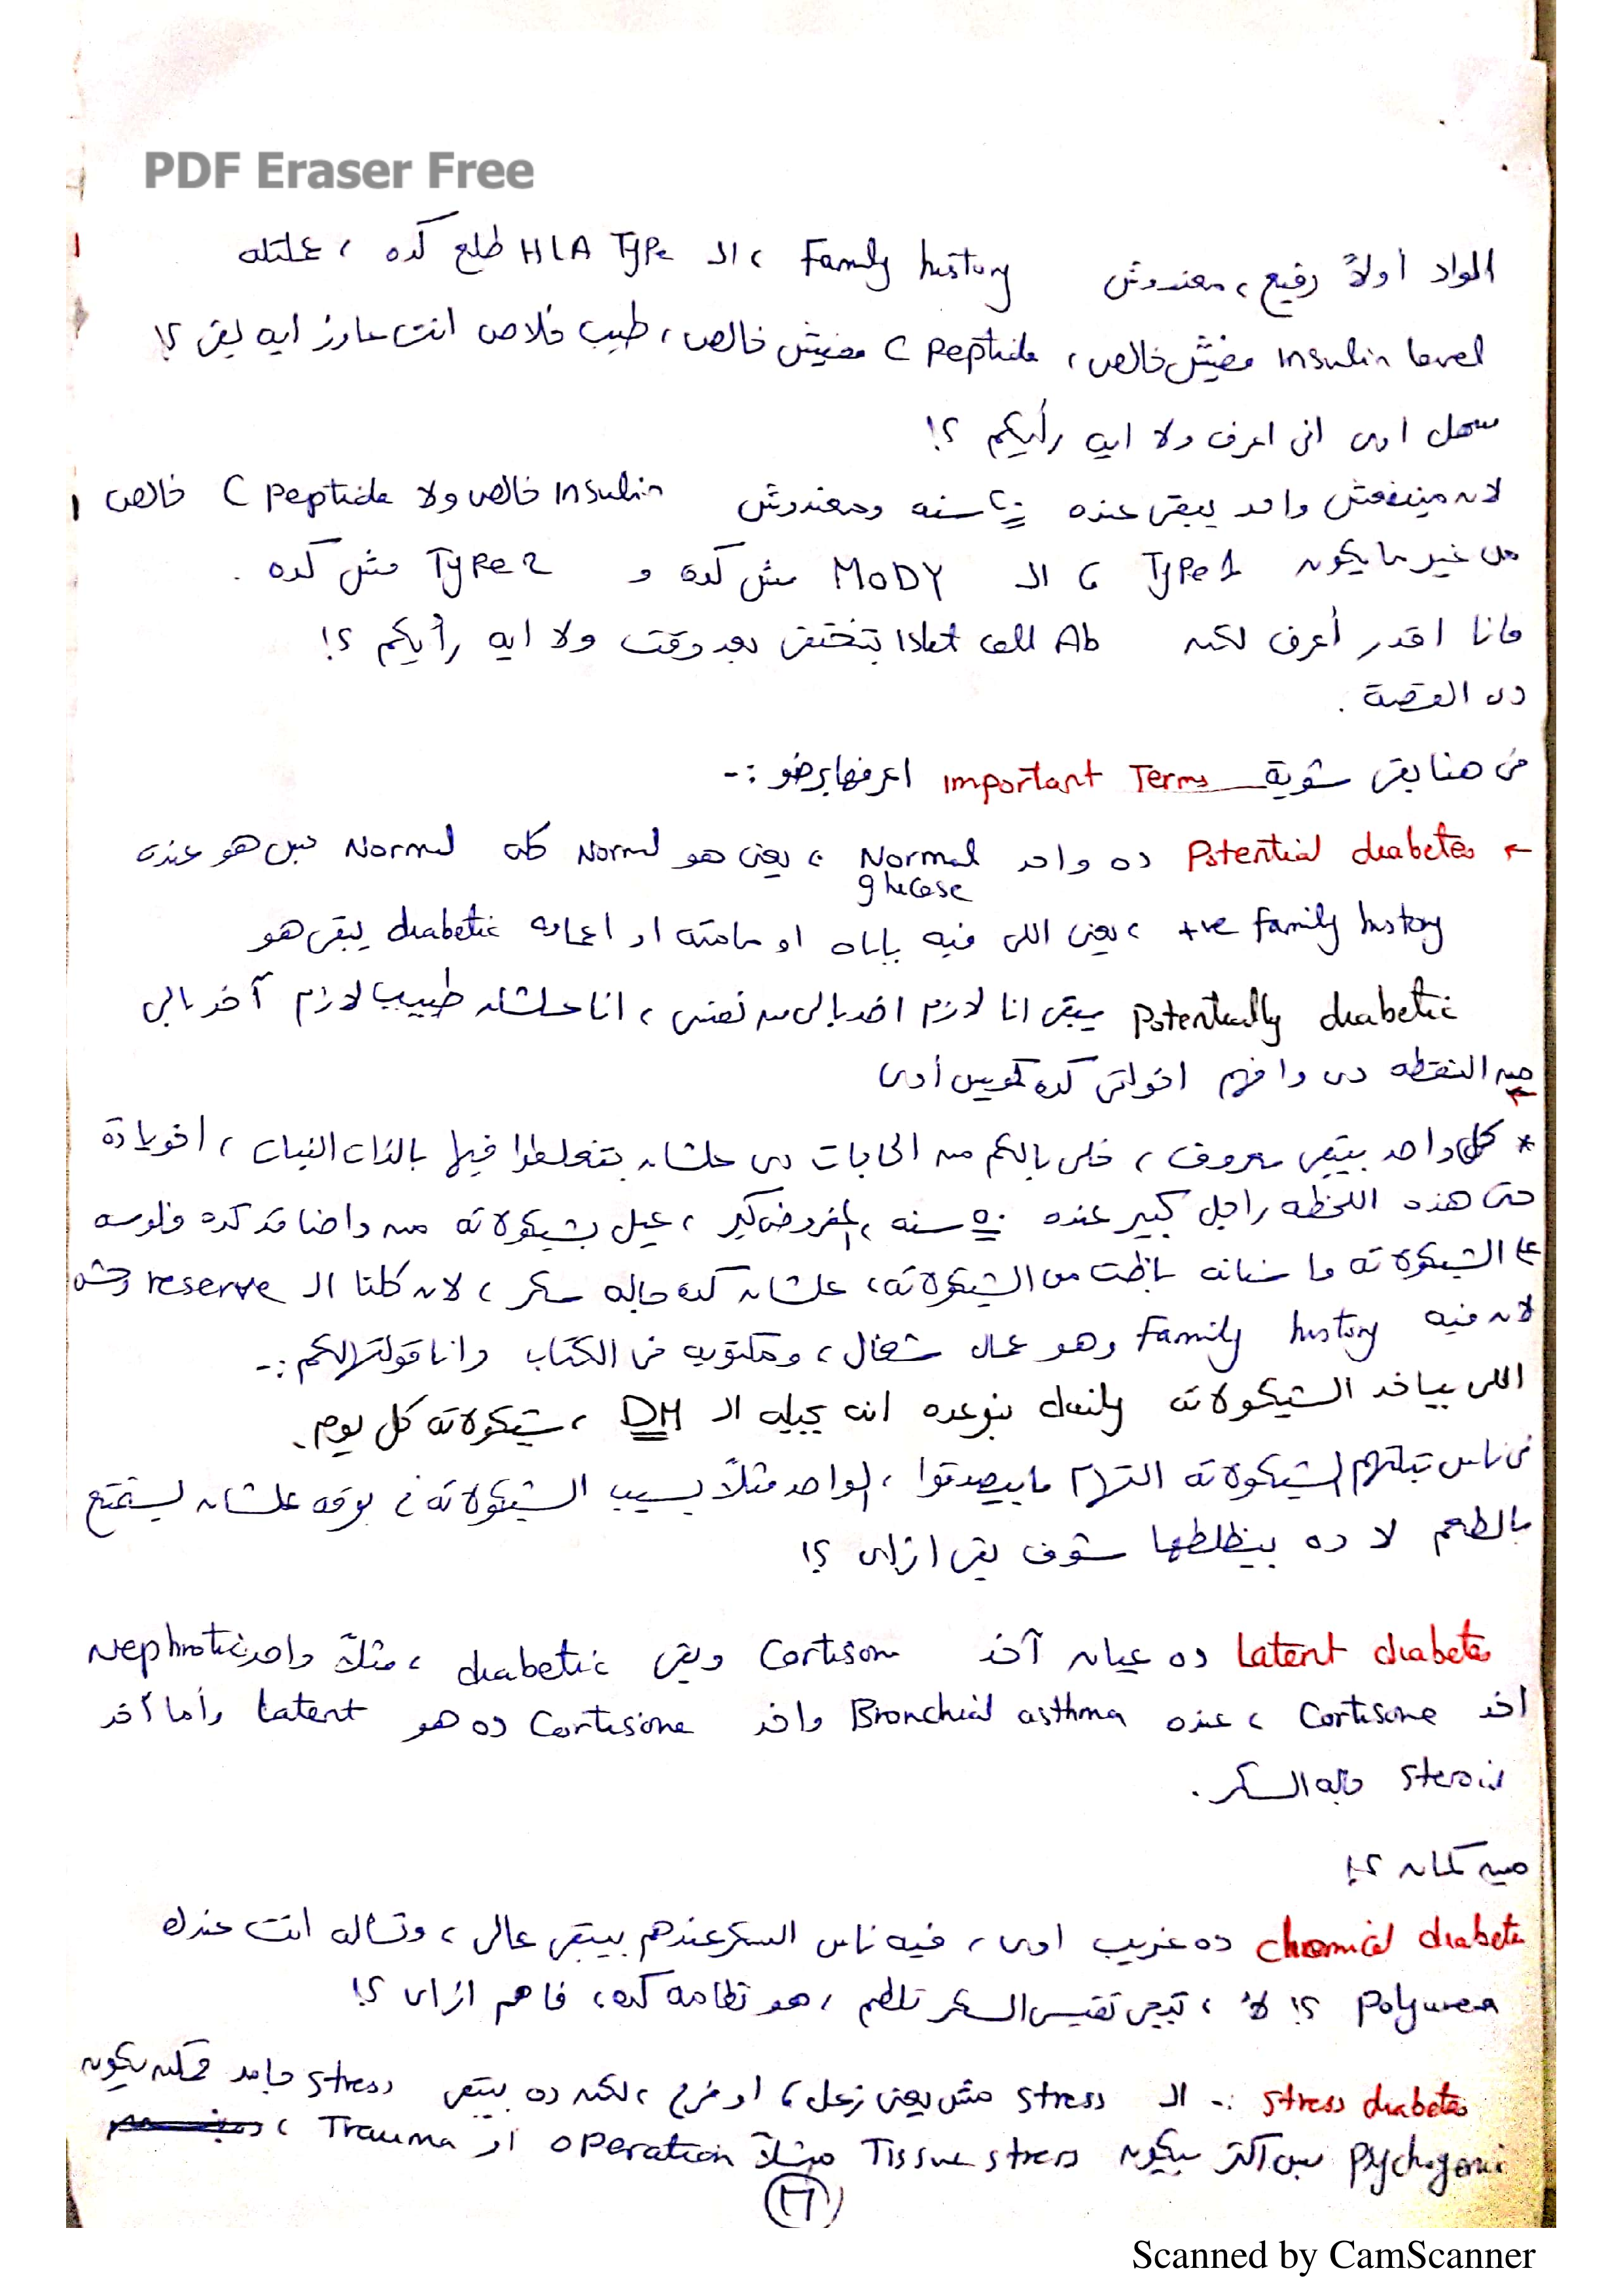 PDF Eraser Free
الواد أولاً رفيع، معندوش Family history، الـ HLA Type طلع كده، عملتله
Insulin level مفيش خالص، C peptide مفيش خالص، طيب خلاص انت عاوز ايه بقى ؟!
سهل اوى انى اعرف ولا ايه رأيكم ؟!
لانه مينفعش واحد يبقى عنده سنه ومعندوش Insulin خالص ولا C peptide خالص
من غير ما يكون Type 1، الـ MODY مش كده و Type 2 مش كده .
فانا اقدر أعرف لكن Islet cell Ab بتختفى بعد وقت ولا ايه رأيكم ؟!
دى القصة .
فى هنا بقى شوية Important Terms اعرفها برضو :-
← Potential diabetes ده واحد Normal glucose، يعنى هو Normal كله Normal بس هو عنده
+ve family history، يعنى اللى فيه باباه او مامته او اعمامه diabetic يبقى هو
Potentially diabetic يبقى انا لازم اخد بالى من نفسى، انا علشان طبيب لازم آخد بالى
من النقطه دى وافهم اخواتى كده كويس أوى
* كل واحد يبقى معروف، خلى بالكم من الحاجات دى علشان بتغلطوا فيها بالذات البنات، اخويا ده
حتى هذه اللحظه راجل كبير عنده ٥٠ سنه، المفروض كبر، عيل بشيكولاته
على الشيكولاته ما سنانه باظت من الشيكولاته، علشان كده جاله سكر، لان كلنا الـ reserve وحش
لان فيه Family history وهو عمال شغال، ومكتوب فى الكتاب وانا قولتهالكم :-
اللى بياخد الشيكولاته daily بنوعده انه يجيله الـ DM، شيكولاته كل يوم.
فى ناس تبلتهم الشيكولاته التهام ما بيصدقوا، الواحد مثلاً يسيب الشيكولاته فى بوقه علشان يستمتع
بالطعم لا ده بيظلطها شوف بقى ازاى ؟!
Latent diabetes ده عيان آخد Cortisone وبقى diabetic، مثلاً واحد Nephrotic
اخد Cortisone، عنده Bronchial asthma واخد Cortisone ده هو Latent وأما أخد
Steroid جاله السكر .
مين كمان ؟!
chemical diabetes ده غريب اوى، فيه ناس السكر عندهم بيبقى عالى، وتسأله انت عندك
Polyurea ؟! لأ، تيجى تقيس السكر تلطم، هو نظامه كده، فاهم ازاى ؟!
Stress diabetes :- الـ Stress مش يعنى زعل، او فرح، لكنه ده يبقى Stress جامد ممكن يكون
Psychogenic بس اكتر بيكون Tissue stress مثلاً operation او Trauma،
١٦
Scanned by CamScanner